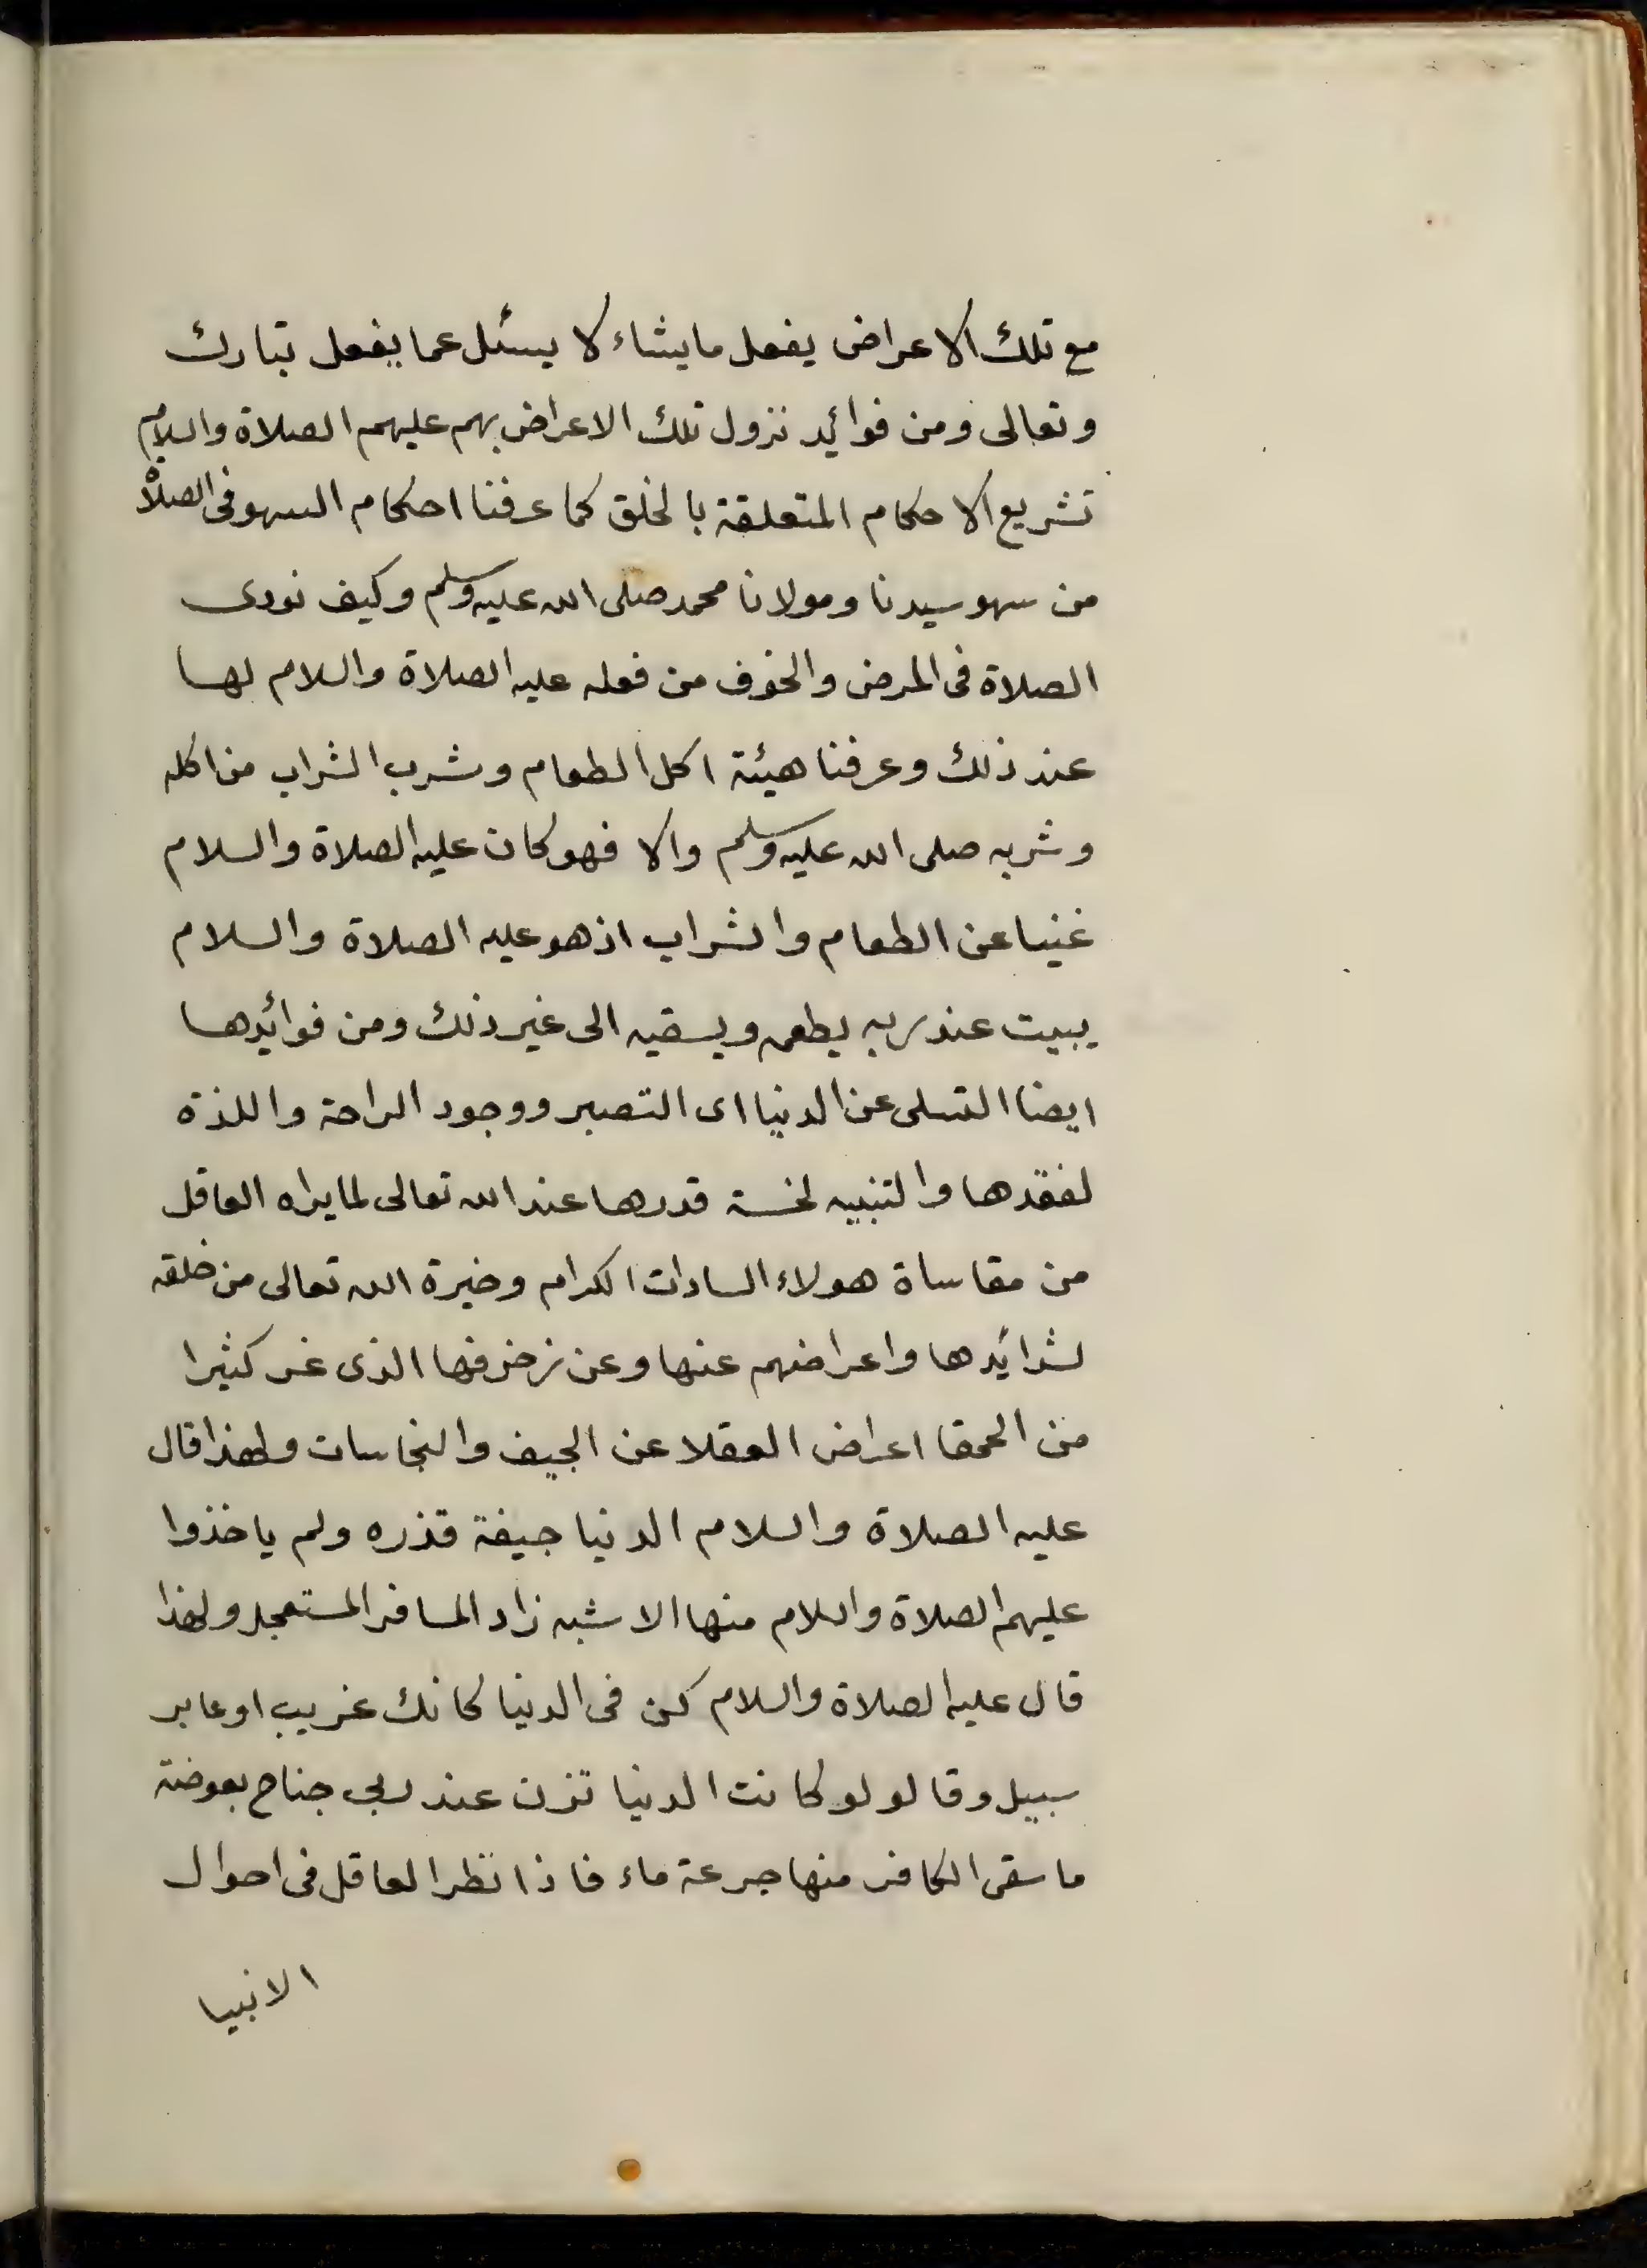 مع تلك الاعراض يفعل ما يشاء لا يسئل عما يفعل تبارك
وتعالى ومن فوائد نزول تلك الاعراض بهم عليهم الصلاة والسلام
تشريع الاحكام المتعلقة بالخلق كما عرفنا احكام السهو فى الصلاة
من سهو سيدنا ومولانا محمد صلى الله عليه وسلم وكيف نودى
الصلاة فى المرض والخوف من فعله عليه الصلاة والسلام لها
عند ذلك وعرفنا هيئة اكل الطعام وشرب الشراب من اكله
وشربه صلى الله عليه وسلم والا فهو كان عليه الصلاة والسلام
غنيا عن الطعام والشراب اذ هو عليه الصلاة والسلام
يبيت عند ربه يطعمه ويسقيه الى غير ذلك ومن فوائدها
ايضا التسلى عن الدنيا اى التصبر ووجود الراحة واللذة
لفقدها والتنبيه لخسة قدرها عند الله تعالى لما يراه العاقل
من مقاساة هولاء السادات الكرام وخيرة الله تعالى من خلقه
لشدائدها واعراضهم عنها وعن زخرفها الذى غر كثيرا
من الحمقا اعراض العقلا عن الجيف والنجاسات ولهذا قال
عليه الصلاة والسلام الدنيا جيفة قذره ولم ياخذوا
عليهم الصلاة والسلام منها الا شبه زاد المسافر المستعجل ولهذا
قال عليه الصلاة والسلام كن فى الدنيا كانك غريب او عابر
سبيل وقال لو كانت الدنيا تزن عند ربى جناح بعوضة
ما سقى الكافر منها جرعة ماء فاذا نظر العاقل فى احوال
الانبيا